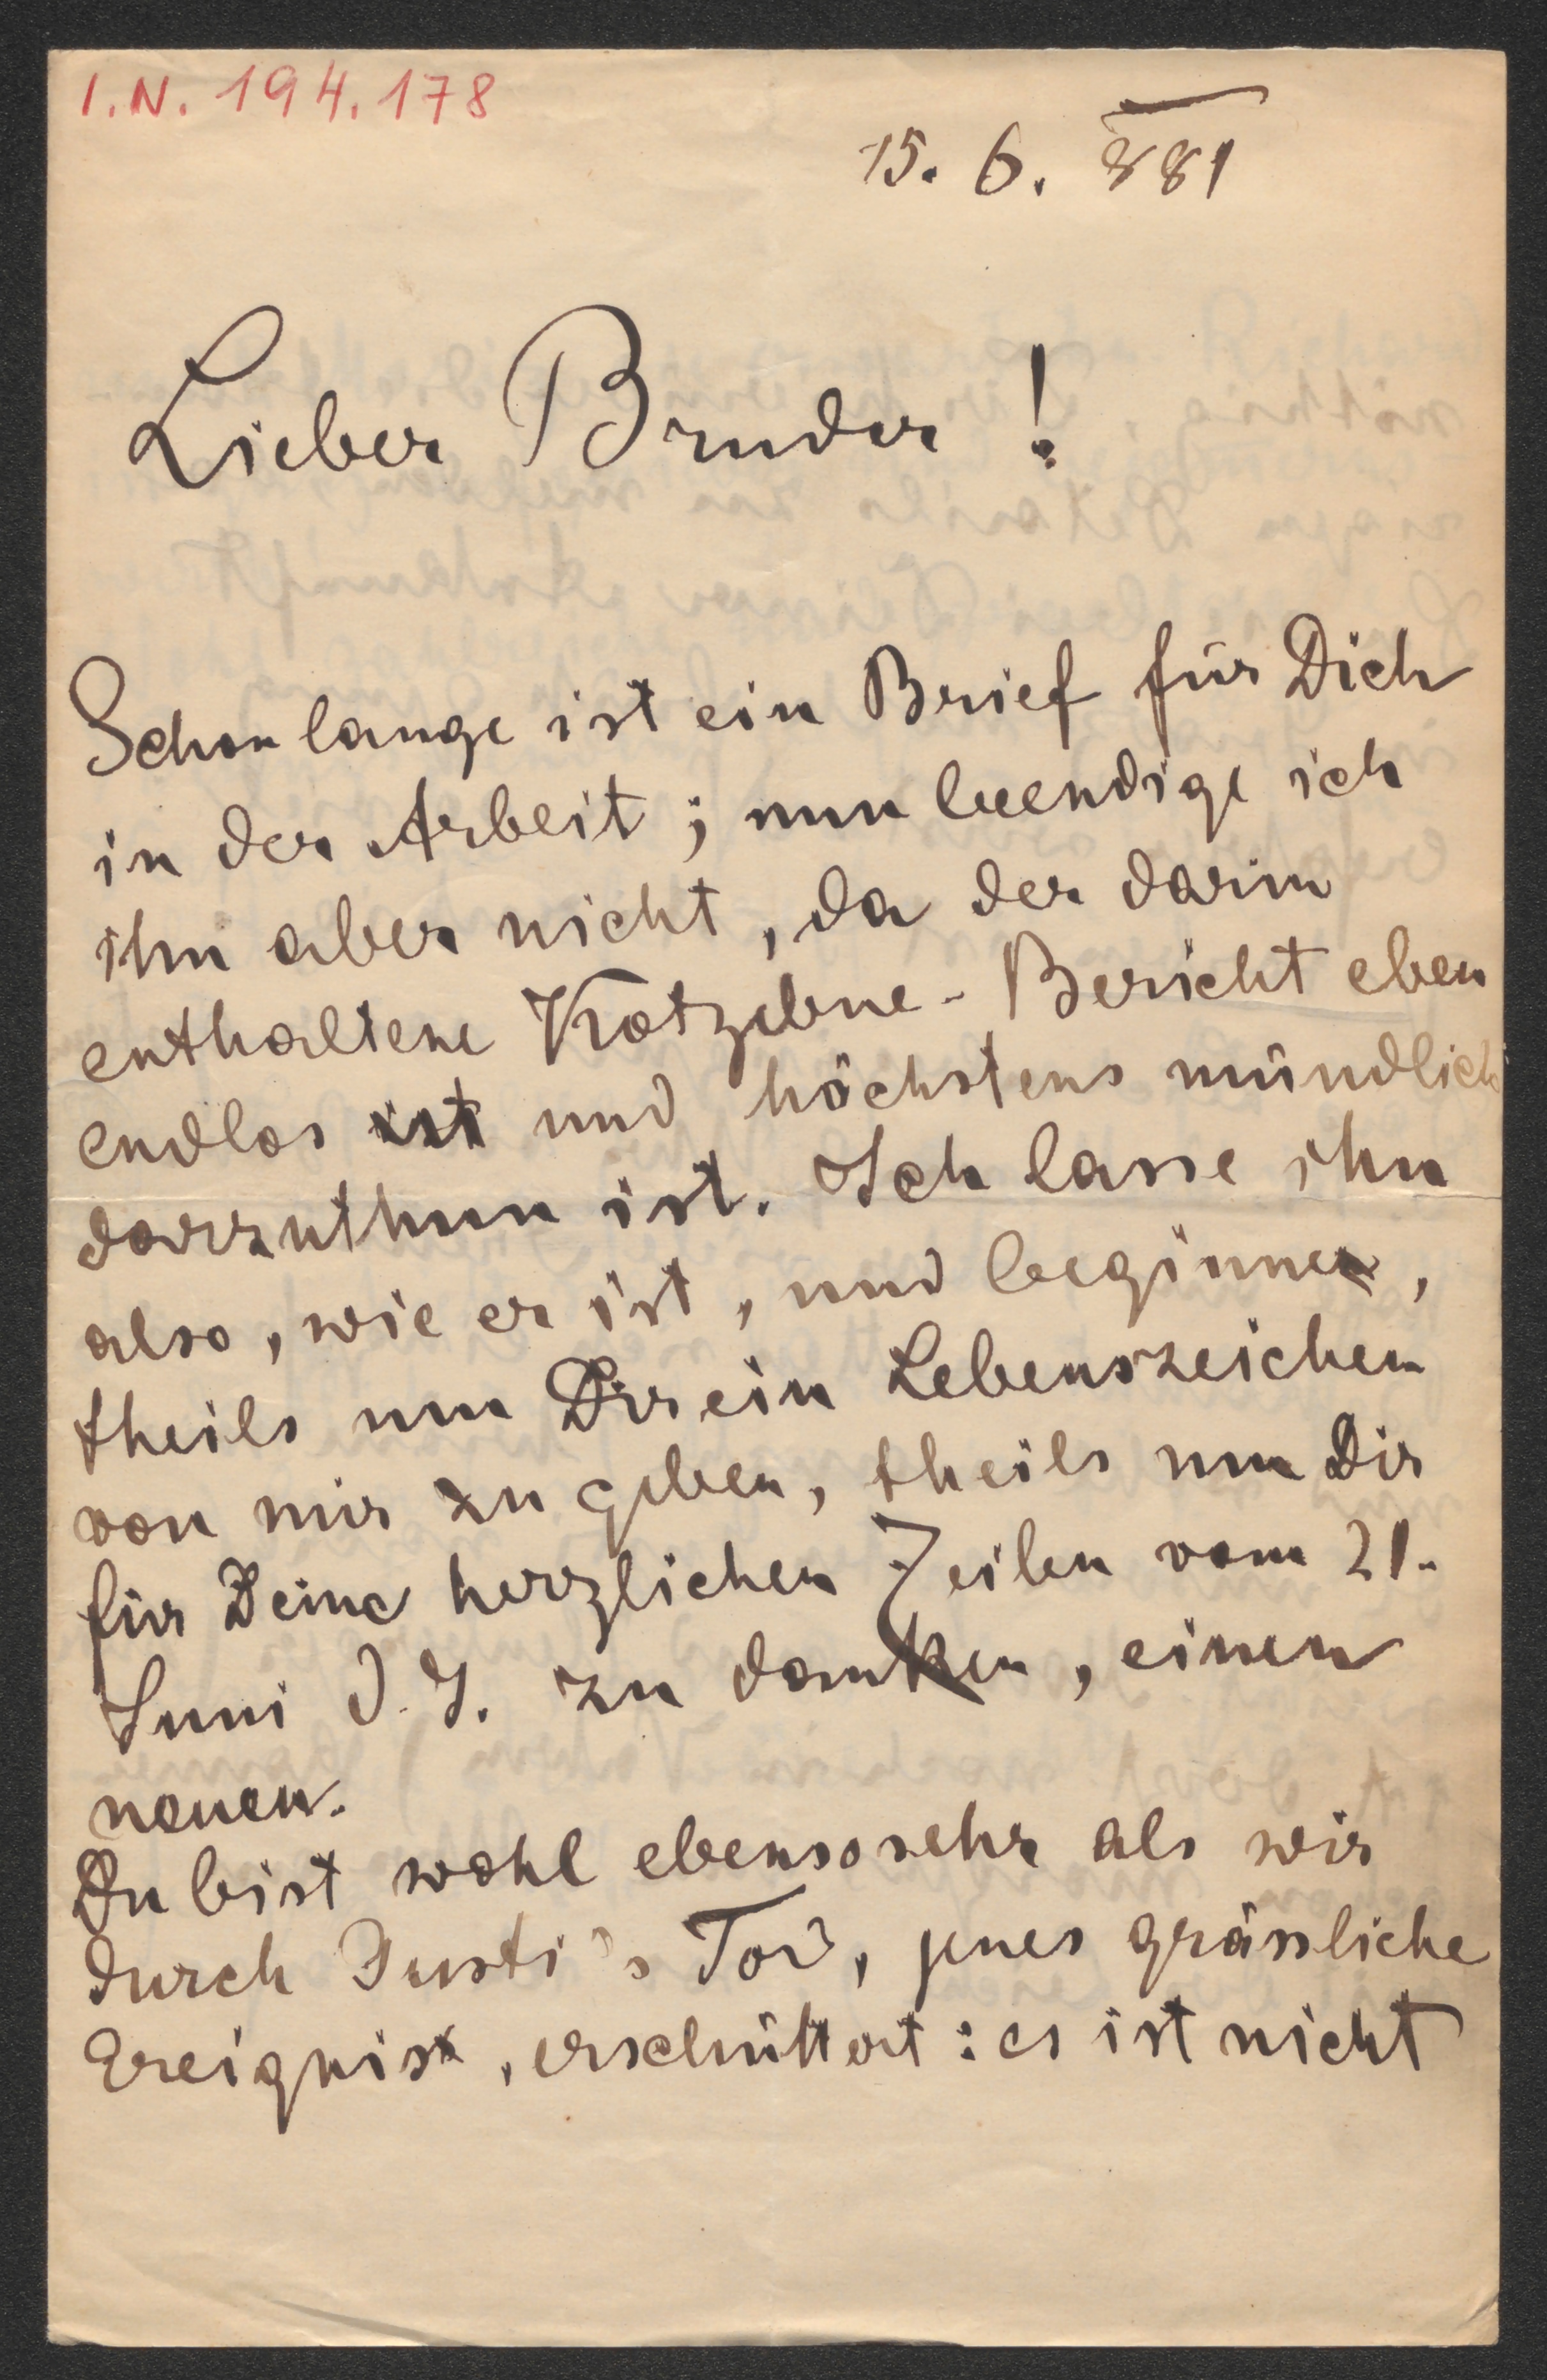 I.N. 194.178
15. 6. 881
Lieber Bruder!
Schon lange ist ein Brief für Dich
in der Arbeit; nun beendige ich
ihn aber nicht, da der darin
enthaltene Kotzebue-Bericht eben
endlos ist und höchstens mündlich
darzuthun ist. Ich lasse ihn
also, wie er ist, und beginne,
theils um Dir ein Lebenszeichen
von mir zu geben, theils um Dir
für Deine herzlichen Zeilen vom 21.
Juni d. J. zu danken, einen
neuen.
Du bist wohl ebensosehr als wir
durch Justi's Tod, jenes grässliche
Ereignis, erschüttert: es ist nicht